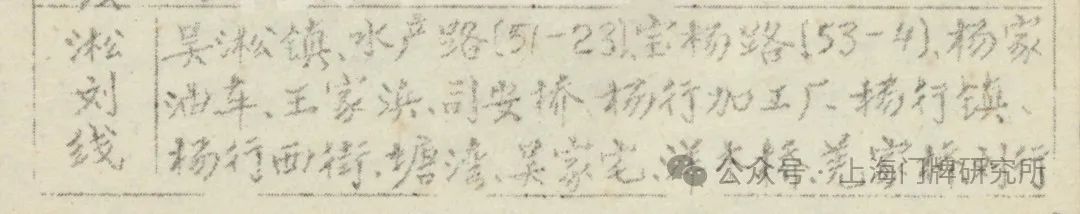 淞刘线
吴淞镇、水产路(51-23)、宝杨路(53-4)、杨家
油车、王家浜、司安桥、杨行加工厂、杨行镇、
杨行西街、塘湾、吴家宅、洋桥、范家桥、刘行
公众号·上海门牌研究所